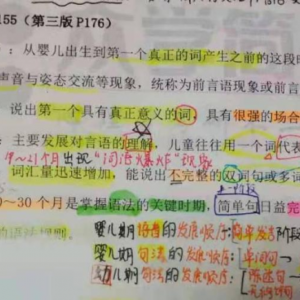 155（第三版P176）
：从婴儿出生到第一个真正的词产生之前的这段时
声音与姿态交流等现象，统称为前言语现象或前言
说出第一个具有真正意义的词，具有很强的场合
：主要发展对言语的理解，儿童往往用一个词代表
9～21个月出现"词语爆炸"现象
词汇量迅速增加，能说出不完整的双词句或多词
0~30个月是掌握语法的关键时期，简单句日益完
婴儿期语音的发展顺序：简单发音阶段
婴儿期句法的发展顺序：单词句
幼儿期句法的发展顺序：陈述句